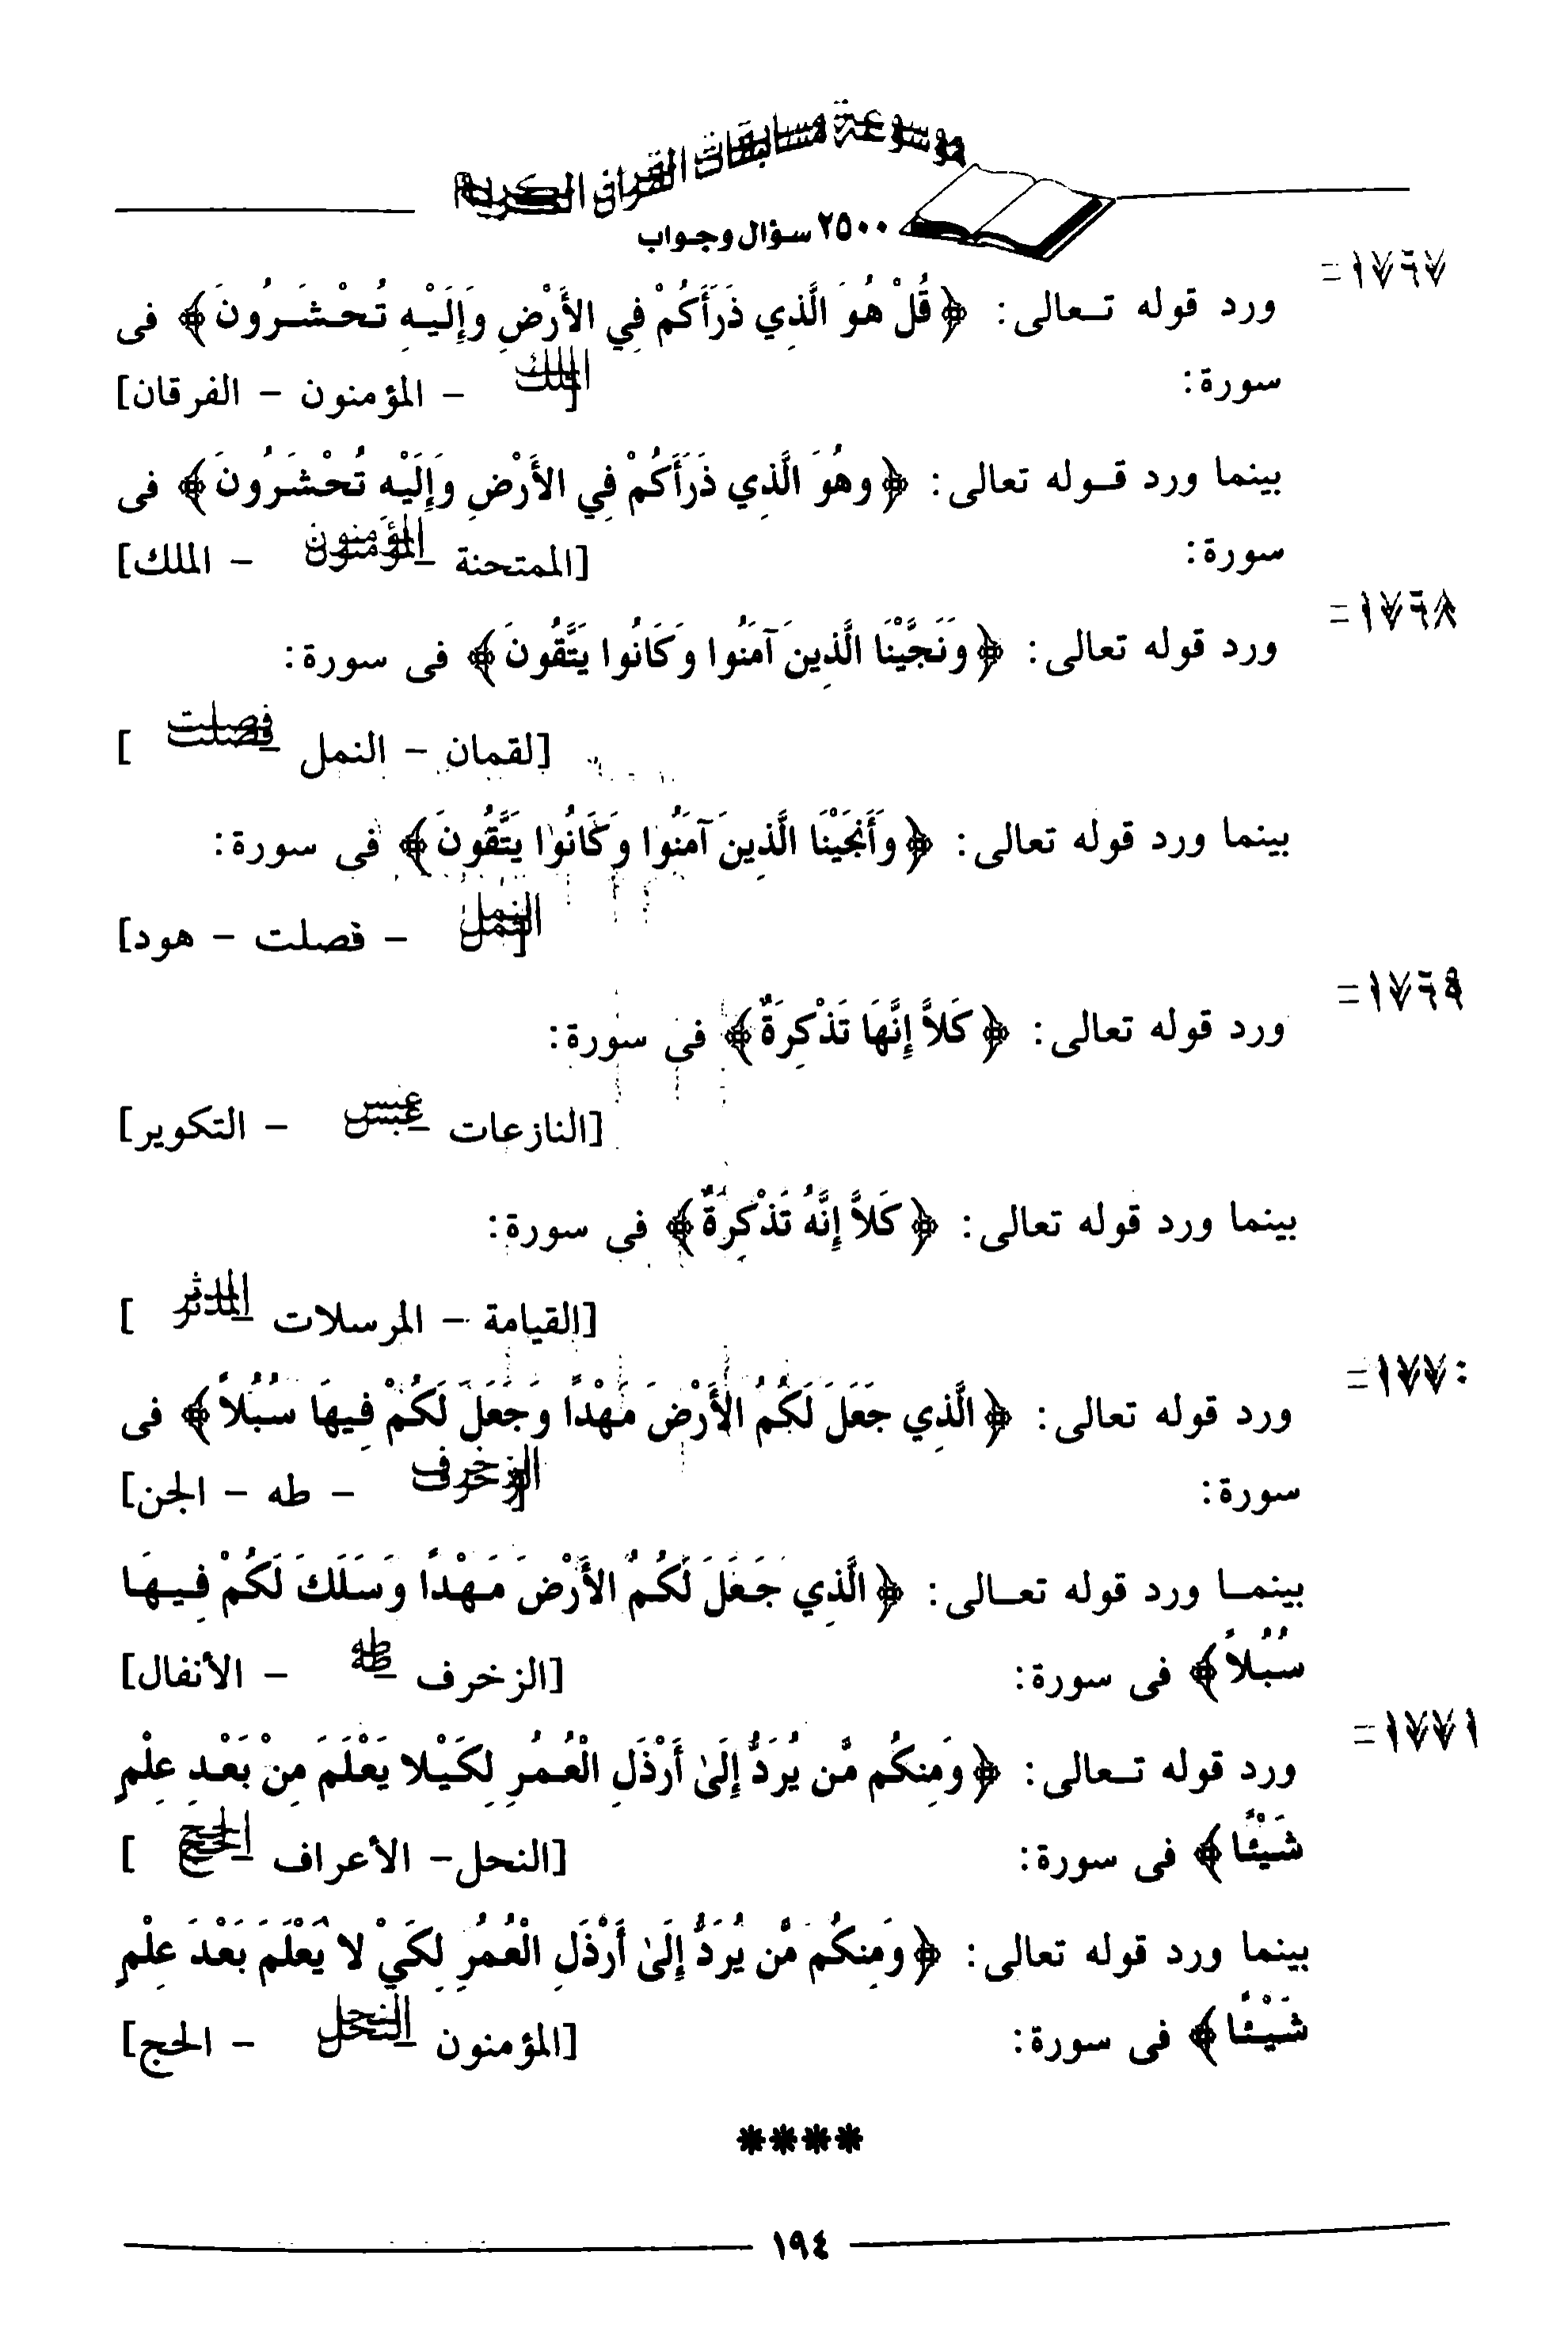 موسوعة مسابقات القرآن الكريم
٢٥٠٠ سؤال وجواب
١٧٦٧=
ورد قوله تـعالى: ﴿قُلْ هُوَ الَّذِي ذَرَأَكُمْ فِي الأَرْضِ وَإِلَيْهِ تُحْشَرُونَ﴾ فى
سورة: [الملك - المؤمنون - الفرقان]
بينما ورد قـوله تعالى: ﴿وهُوَ الَّذِي ذَرَأَكُمْ فِي الأَرْضِ وَإِلَيْهِ تُحْشَرُونَ﴾ فى
سورة: [الممتحنة - المؤمنون - الملك]
١٧٦٨=
ورد قوله تعالى: ﴿وَنَجَّيْنَا الَّذِينَ آمَنُوا وَكَانُوا يَتَّقُونَ﴾ فى سورة:
[لقمان - النمل - فصلت]
بينما ورد قوله تعالى: ﴿وَأَنجَيْنَا الَّذِينَ آمَنُوا وَكَانُوا يَتَّقُونَ﴾ فى سورة:
[النمل - فصلت - هود]
١٧٦٩=
ورد قوله تعالى: ﴿كَلاَّ إِنَّهَا تَذْكِرَةٌ﴾ فى سورة:
[النازعات - عبس - التكوير]
بينما ورد قوله تعالى: ﴿كَلاَّ إِنَّهُ تَذْكِرَةٌ﴾ فى سورة:
[القيامة - المرسلات - المدثر]
١٧٧٠=
ورد قوله تعالى: ﴿الَّذِي جَعَلَ لَكُمُ الأَرْضَ مَهْدًا وَجَعَلَ لَكُمْ فِيهَا سُبُلاً﴾ فى
سورة: [الزخرف - طه - الجن]
بينمـا ورد قوله تعـالى: ﴿الَّذِي جَعَلَ لَكُمُ الأَرْضَ مَهْدًا وَسَلَكَ لَكُمْ فِيهَا
سُبُلاً﴾ فى سورة: [الزخرف - طه - الأنفال]
١٧٧١=
ورد قوله تـعالى: ﴿وَمِنكُم مَّن يُرَدُّ إِلَىٰ أَرْذَلِ الْعُمُرِ لِكَيْلا يَعْلَمَ مِنْ بَعْدِ عِلْمٍ
شَيْئًا﴾ فى سورة: [النحل - الأعراف - الحج]
بينما ورد قوله تعالى: ﴿وَمِنكُم مَّن يُرَدُّ إِلَىٰ أَرْذَلِ الْعُمُرِ لِكَيْ لا يَعْلَمَ بَعْدَ عِلْمٍ
شَيْئًا﴾ فى سورة: [المؤمنون - النحل - الحج]
****
١٩٤